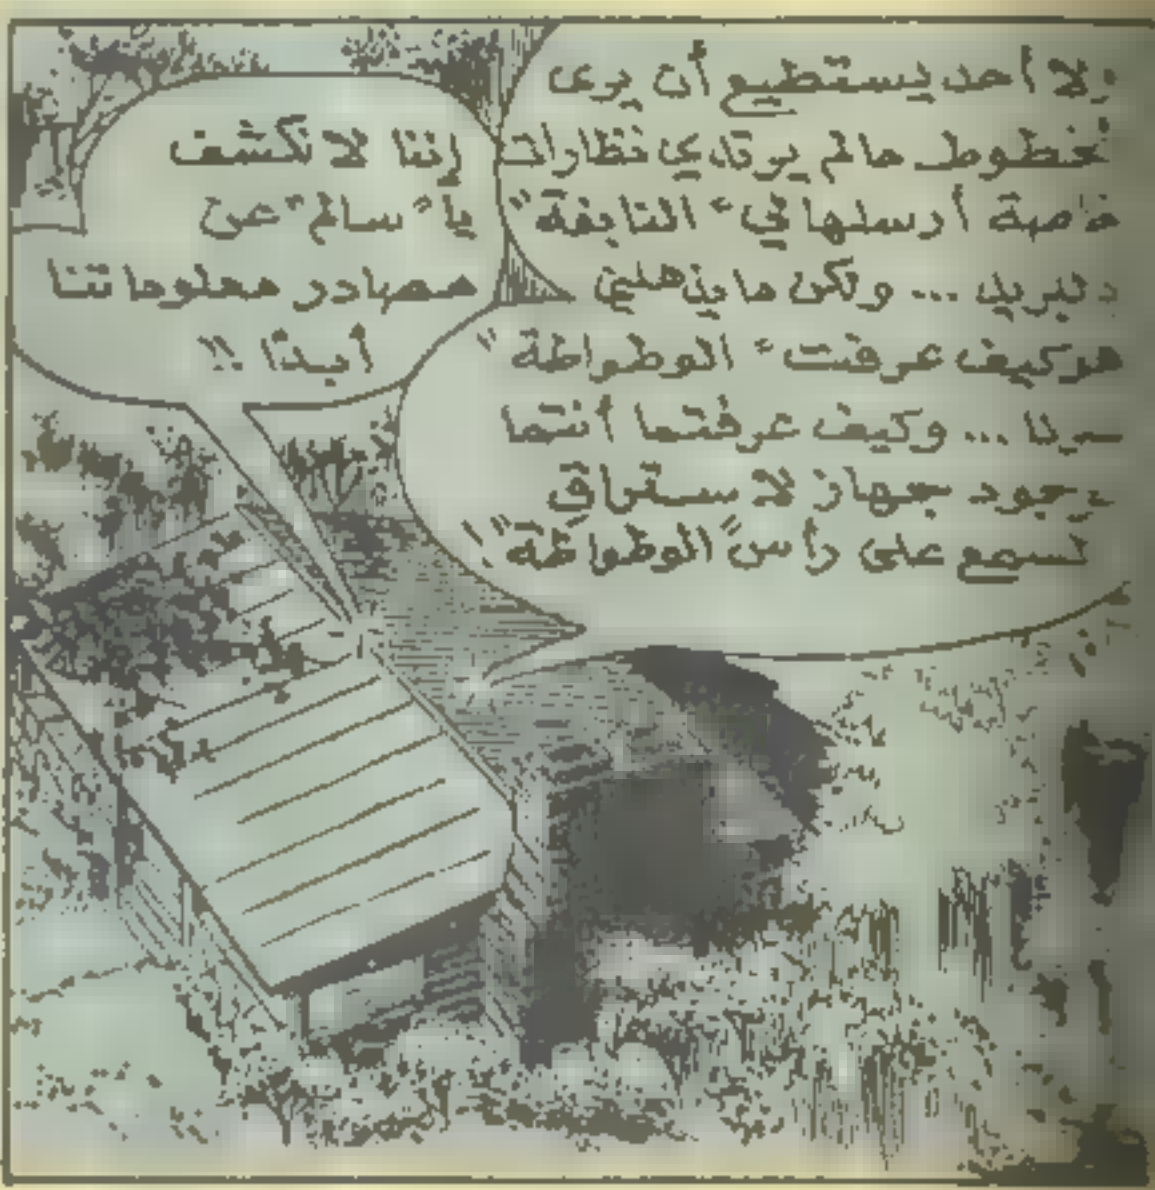 ولا أحد يستطيع أن يرى
الخطوط مالم يرتدي نظارات
خاصة أرسلها لي "النابغة"
بالبريد ... ولكن ما يذهلني
هو كيف عرفت "الوطواطة"
سرنا ... وكيف عرفتما أنتما
بوجود جهاز لاستراق
السمع على رأس "الوطواطة"!
إننا لا نكشف
يا "سالم" عن
مصادر معلوماتنا
أبدًا !!